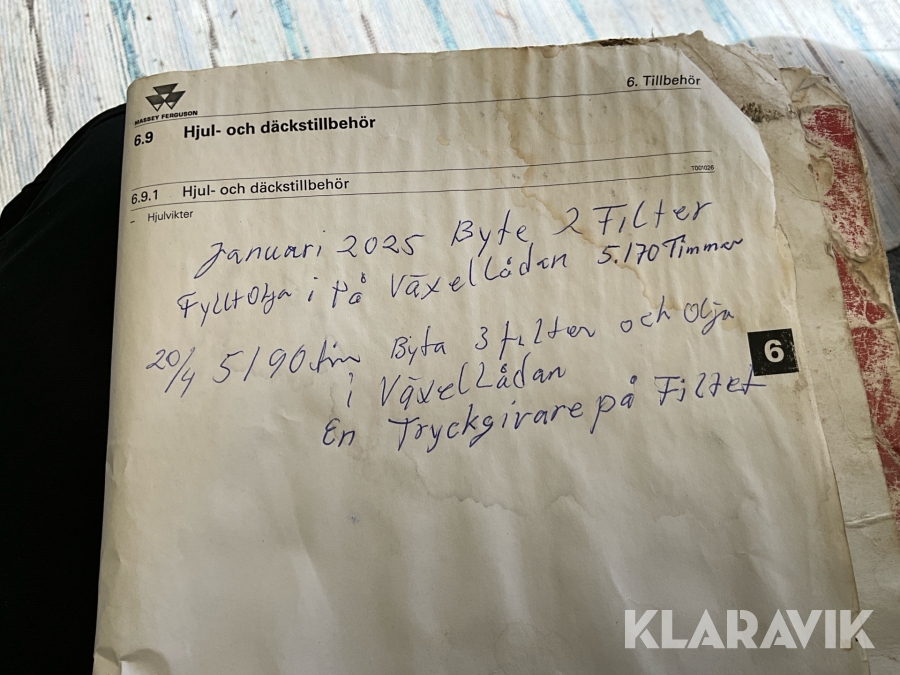 MASSEY FERGUSON
6. Tillbehör
6.9 Hjul- och däckstillbehör
T001026
6.9.1 Hjul- och däckstillbehör
– Hjulvikter
Januari 2025 Byte 2 Filter
Fyllt Olja i på Växellådan 5.170 Timmar
20/4 5190 tim Byta 3 filter och Olja
i Växellådan
6
En Tryckgivare på Filtet
KLARAVIK